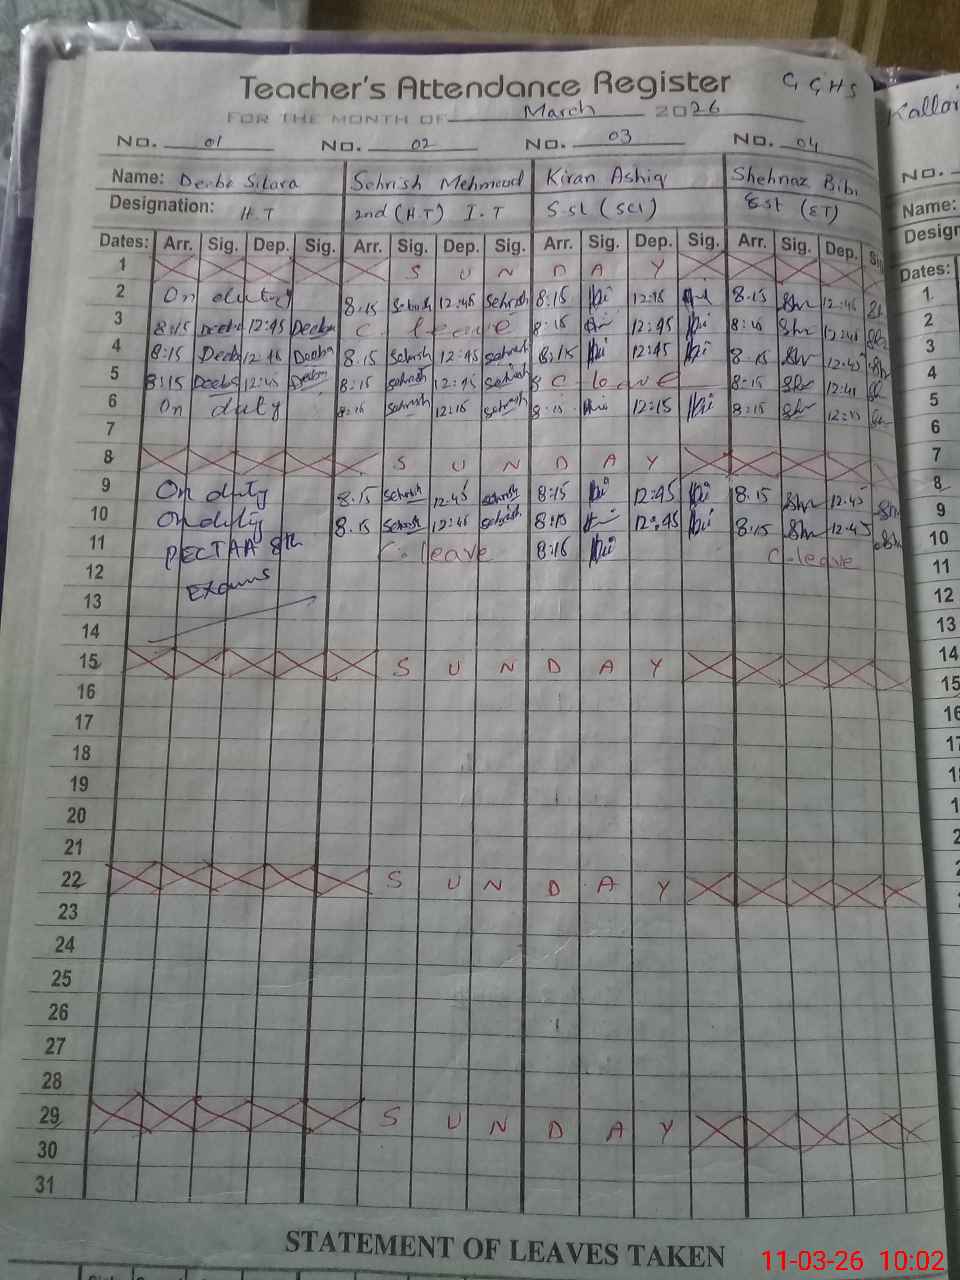 Teacher's Attendance Register GGHS
FOR THE MONTH OF March 2026
No. 01 No. 02 No. 03 No. 04
Name: Deeba Sitara Sehrish Mehmood Kiran Ashiq Shehnaz Bibi
Designation: H.T 2nd (H.T) I.T S.st (SCI) Est (ET)
Dates: Arr. Sig. Dep. Sig. Arr. Sig. Dep. Sig. Arr. Sig. Dep. Sig. Arr. Sig. Dep.
1 S U N D A Y
2 On duty 8.15 Sehrish 12:45 Sehrish 8:15 12:15 8.15 12:45
3 8:15 Deeba 12:45 Deeba C. leave 8:15 12:45 8:15 12:45
4 8:15 Deeba 12:45 Deeba 8.15 Sehrish 12:45 Sehrish 8:15 12:45 8.15 12:45
5 8:15 Deeba 12:45 Deeba 8:15 Sehrish 12:45 Sehrish C-leave 8:15 12:45
6 On duty 8:15 Sehrish 12:15 Sehrish 8:15 12:15 8:15 12:15
7
8 S U N D A Y
9 On duty 8.15 Sehrish 12.45 Sehrish 8:15 12:45 8.15 12.45
10 On duty 8.15 Sehrish 12:45 Sehrish 8:15 12:45 8:15 12.45
11 PECTAA 8th C. leave 8:15 C-leave
12 Exams
13
14
15 S U N D A Y
16
17
18
19
20
21
22 S U N D A Y
23
24
25
26
27
28
29 S U N D A Y
30
31
STATEMENT OF LEAVES TAKEN
11-03-26 10:02
No.
Name:
Dates:
1
2
3
4
5
6
7
8
9
10
11
12
13
14
15